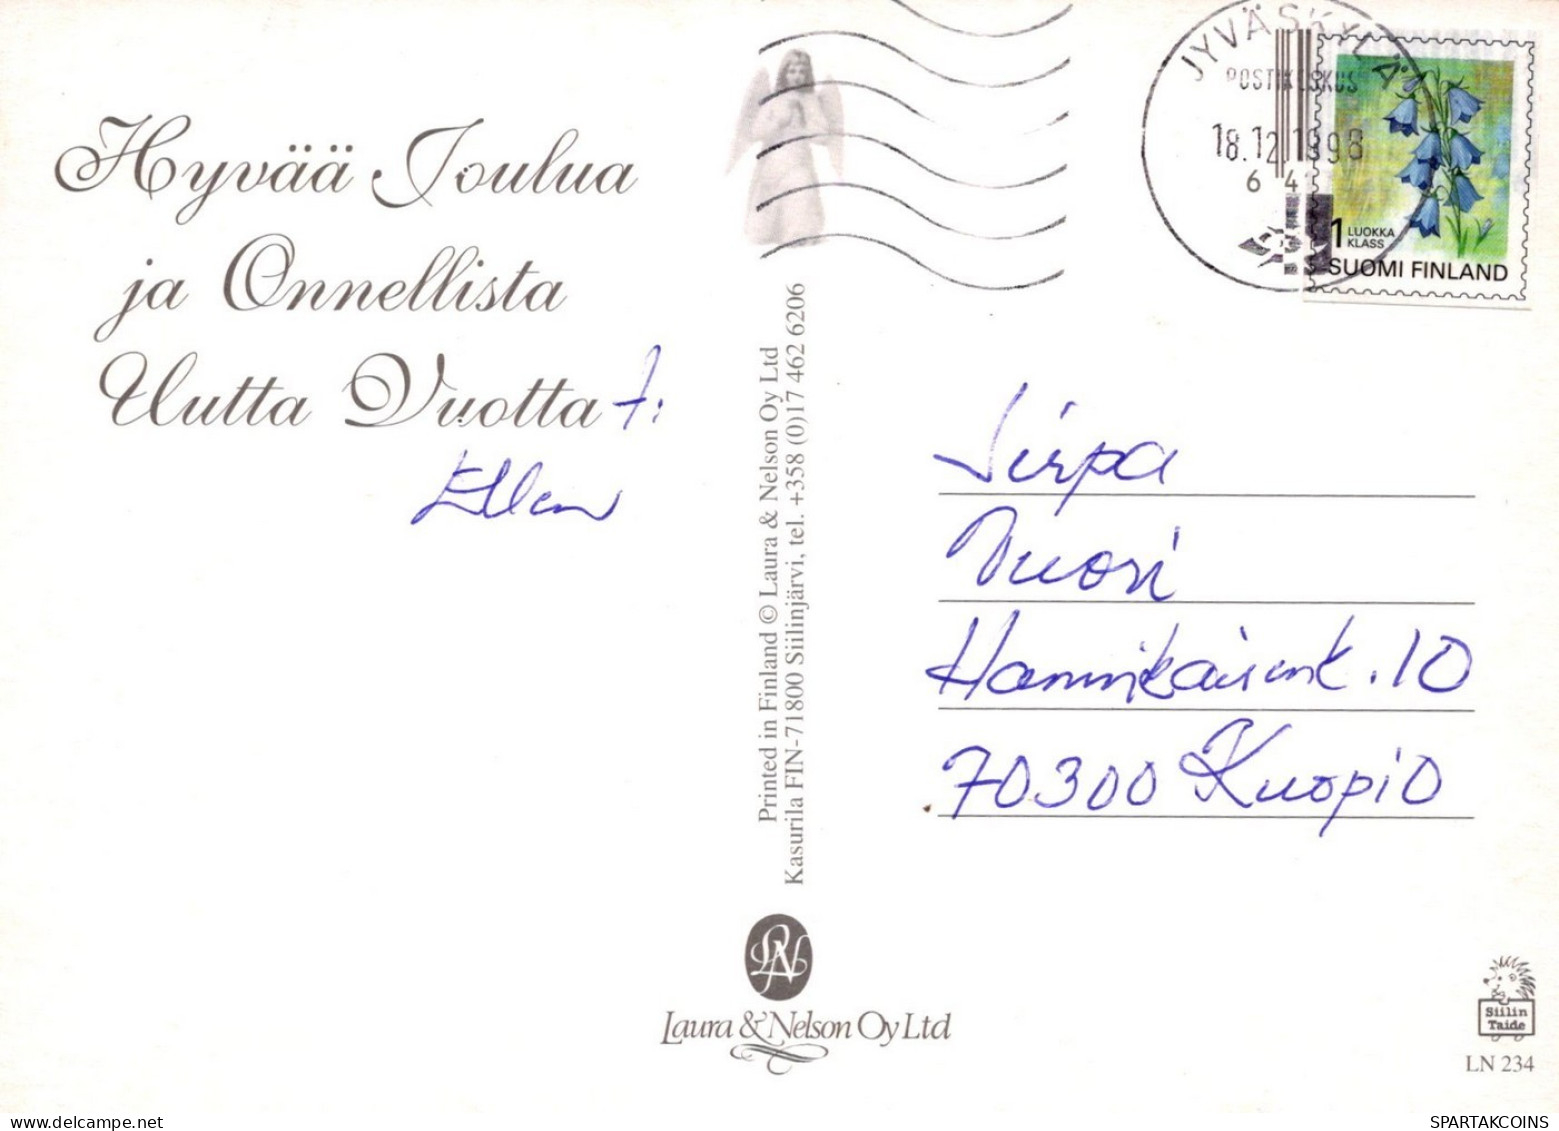 Hyvää Joulua
ja Onnellista
Uutta Vuotta T:
Ellen
Printed in Finland © Laura & Nelson Oy Ltd
Kasurila FIN-71800 Siilinjärvi, tel. +358 (0)17 462 6206
JYVÄSKYLÄ
POSTIKESKUS
18.12.1998
6 4
1 LUOKKA
KLASS
SUOMI FINLAND
Sirpa
Vuori
Hannikaisenk. 10
70300 Kuopio
LN
Laura & Nelson Oy Ltd
Siilin
Taide
LN 234
SPARTAKCOINS